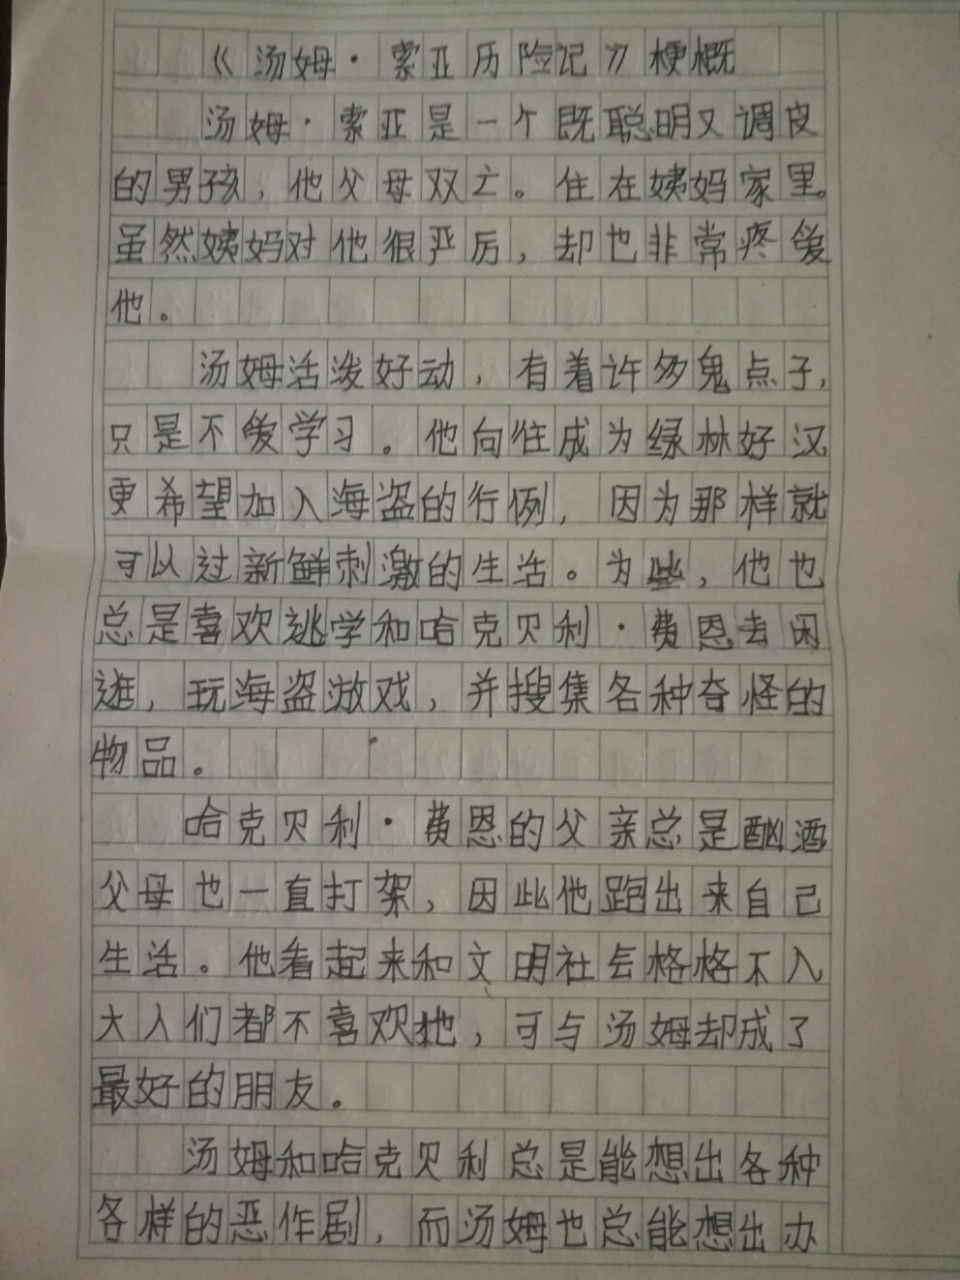 《汤姆·索亚历险记》梗概
汤姆·索亚是一个既聪明又调皮
的男孩，他父母双亡。住在姨妈家里。
虽然姨妈对他很严厉，却也非常疼爱
他。
汤姆活泼好动，有着许多鬼点子，
只是不爱学习。他向往成为绿林好汉
更希望加入海盗的行例，因为那样就
可以过新鲜刺激的生活。为此，他也
总是喜欢逃学和哈克贝利·费恩去闲
逛，玩海盗游戏，并搜集各种奇怪的
物品。
哈克贝利·费恩的父亲总是酗酒
父母也一直打架，因此他跑出来自己
生活。他看起来和文明社会格格不入
大人们都不喜欢他，可与汤姆却成了
最好的朋友。
汤姆和哈克贝利总是能想出各种
各样的恶作剧，而汤姆也总能想出办